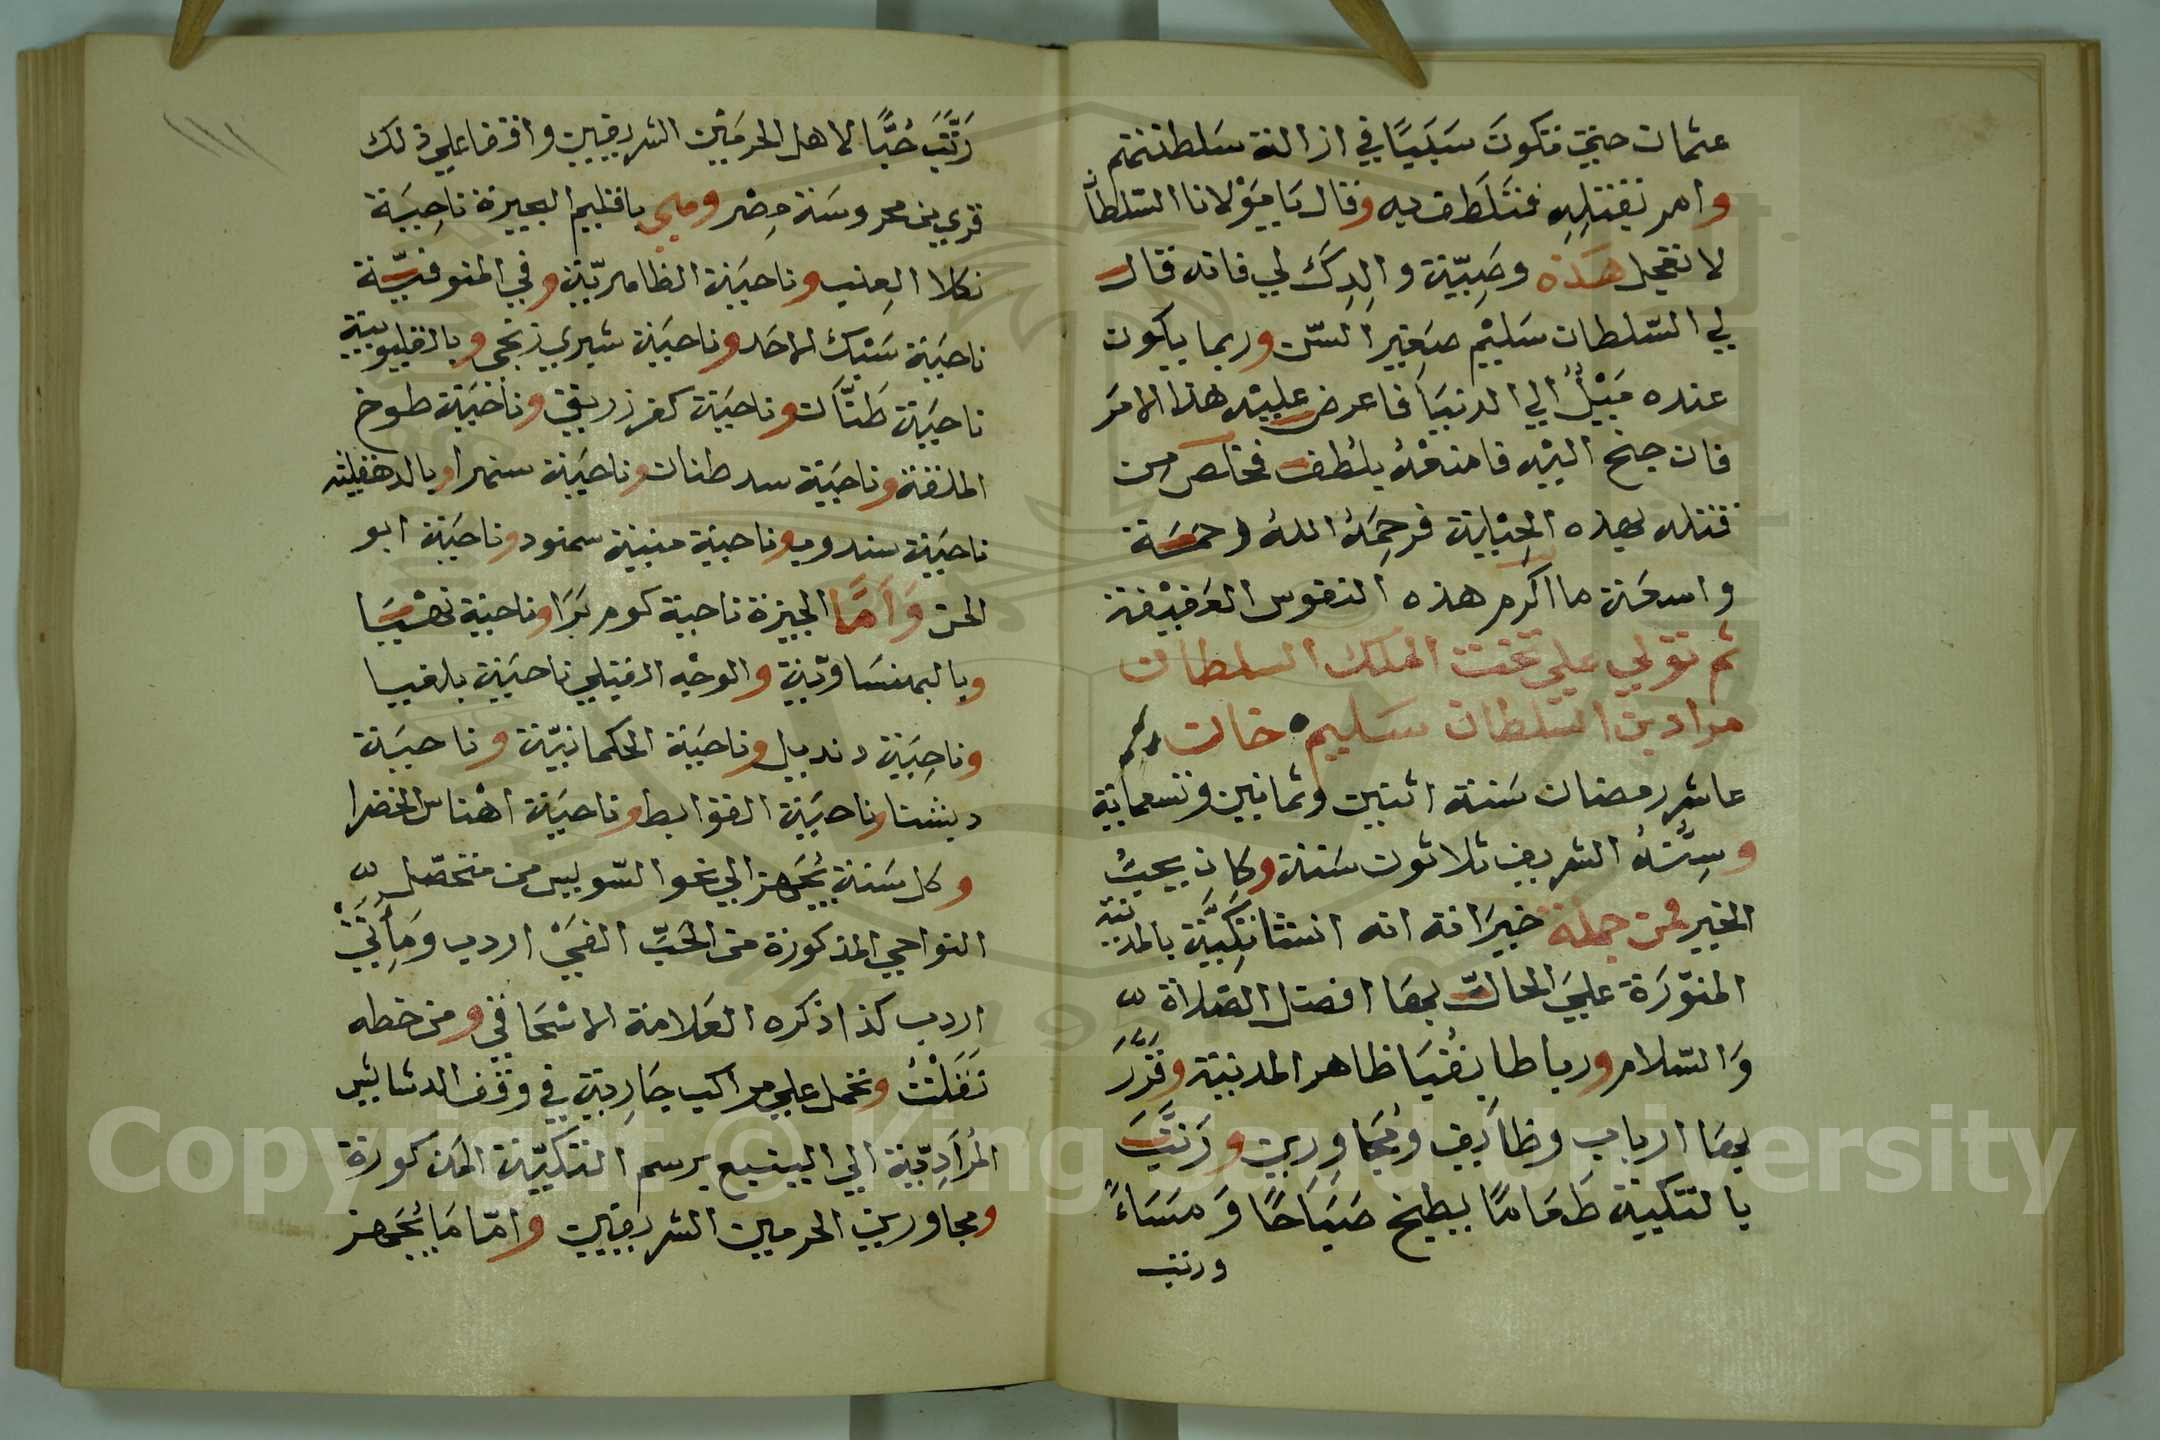 عثمان حتي فتكون سَبَبًا في ازالة سَلطنتهم
وامر بقتلِهِ فتَلَطف به وقال يَا مَوْلانا السّلطان
لا تعجل هَذه وصِيّة وَالِدِكَ لي فانه قال
لي السّلطان سَليْم صَغِير السّن وربما يكون
عنده مَيْلٌ الي الدنيَا فاعرض عليْه هذا الامَر
فان جنح اليْه فامنعْهُ بلُطف فخلص من
قتله بهذه الحِكاية فرحِمَهُ اللهُ رحمَة
واسعَة ما اكرم هذه النفوس العَفيْفة
ثم تولي علي تخت الملك السلطان
مراد بن السّلطان سَليم خان
عاشر رمضان سَنة اثنين وثمانين وتسعماية
وسِنّهُ الشريف ثلاثون سَنة وكان يحبّ
الخير فمن جملة خيرَاته انه انشا تِكيَّة بالمدينة
المنوّرَة عليَ الحال بهَا افضل الصّلاة
وَالسّلام ورباطا بفُنيَا ظاهر المدينة وقَرَّرَ
بهَا ارباب وظايف ومُجَاوِرين ورَتَّبَ
بالتكية طَعَامًا بطبخ صَبَاحًا وَمسَاءً
ورتب
رَتَّبَ حُبًّا لاهل الحرمَيْن الشريفيين واقفا علي ذلك
قري بمحروسَة مِصْر وهي باقليم البحيرة ناحِيَة
نكلا العِنب وناحيَة الظاهريّة وفي المنوفيّة
ناحيَة سَبْك الاحَد وناحيَة شبري زنجي وبالقليوبية
ناحيَة طَنَّان وناحيَة كفر زريق وناحيَة طوخ
الملقة وناحيَة سدطنان وناحيَة سنمرا وبالدهقلية
ناحيَة سندوب وناحية منية سمنود وناحيَة ابو
الحن وَاَمَّا الجيزة ناحية كوم بَرَا وناحية نهْيَا
وبالبهنسَاويّة والوجْه القبلي ناحيَة بلفيا
وناحِيَة دنديل وناحيَة الحكمانيّة وناحيَة
ديشنا وناحِيَة القوابط وناحيَة اهْناس الخضرا
وكل سَنة يُجَهز الي نحو السّويس من متحصّل
النواحي المذكورة من الحَبّ الفيَ اردب ومَأِتَيْ
اردب كذا ذكره العَلامة الاسْحَاقي ومن خطه
نَقَلْتُ وتحمل علي مراكب جَارِية في وقف الدشايش
المُرَادِيّة الي الينبع برسم التكيّة المذكورة
ومجاورين الحرمين الشريفيين وامّا مَا يُجَهز
Copyright © King Saud University